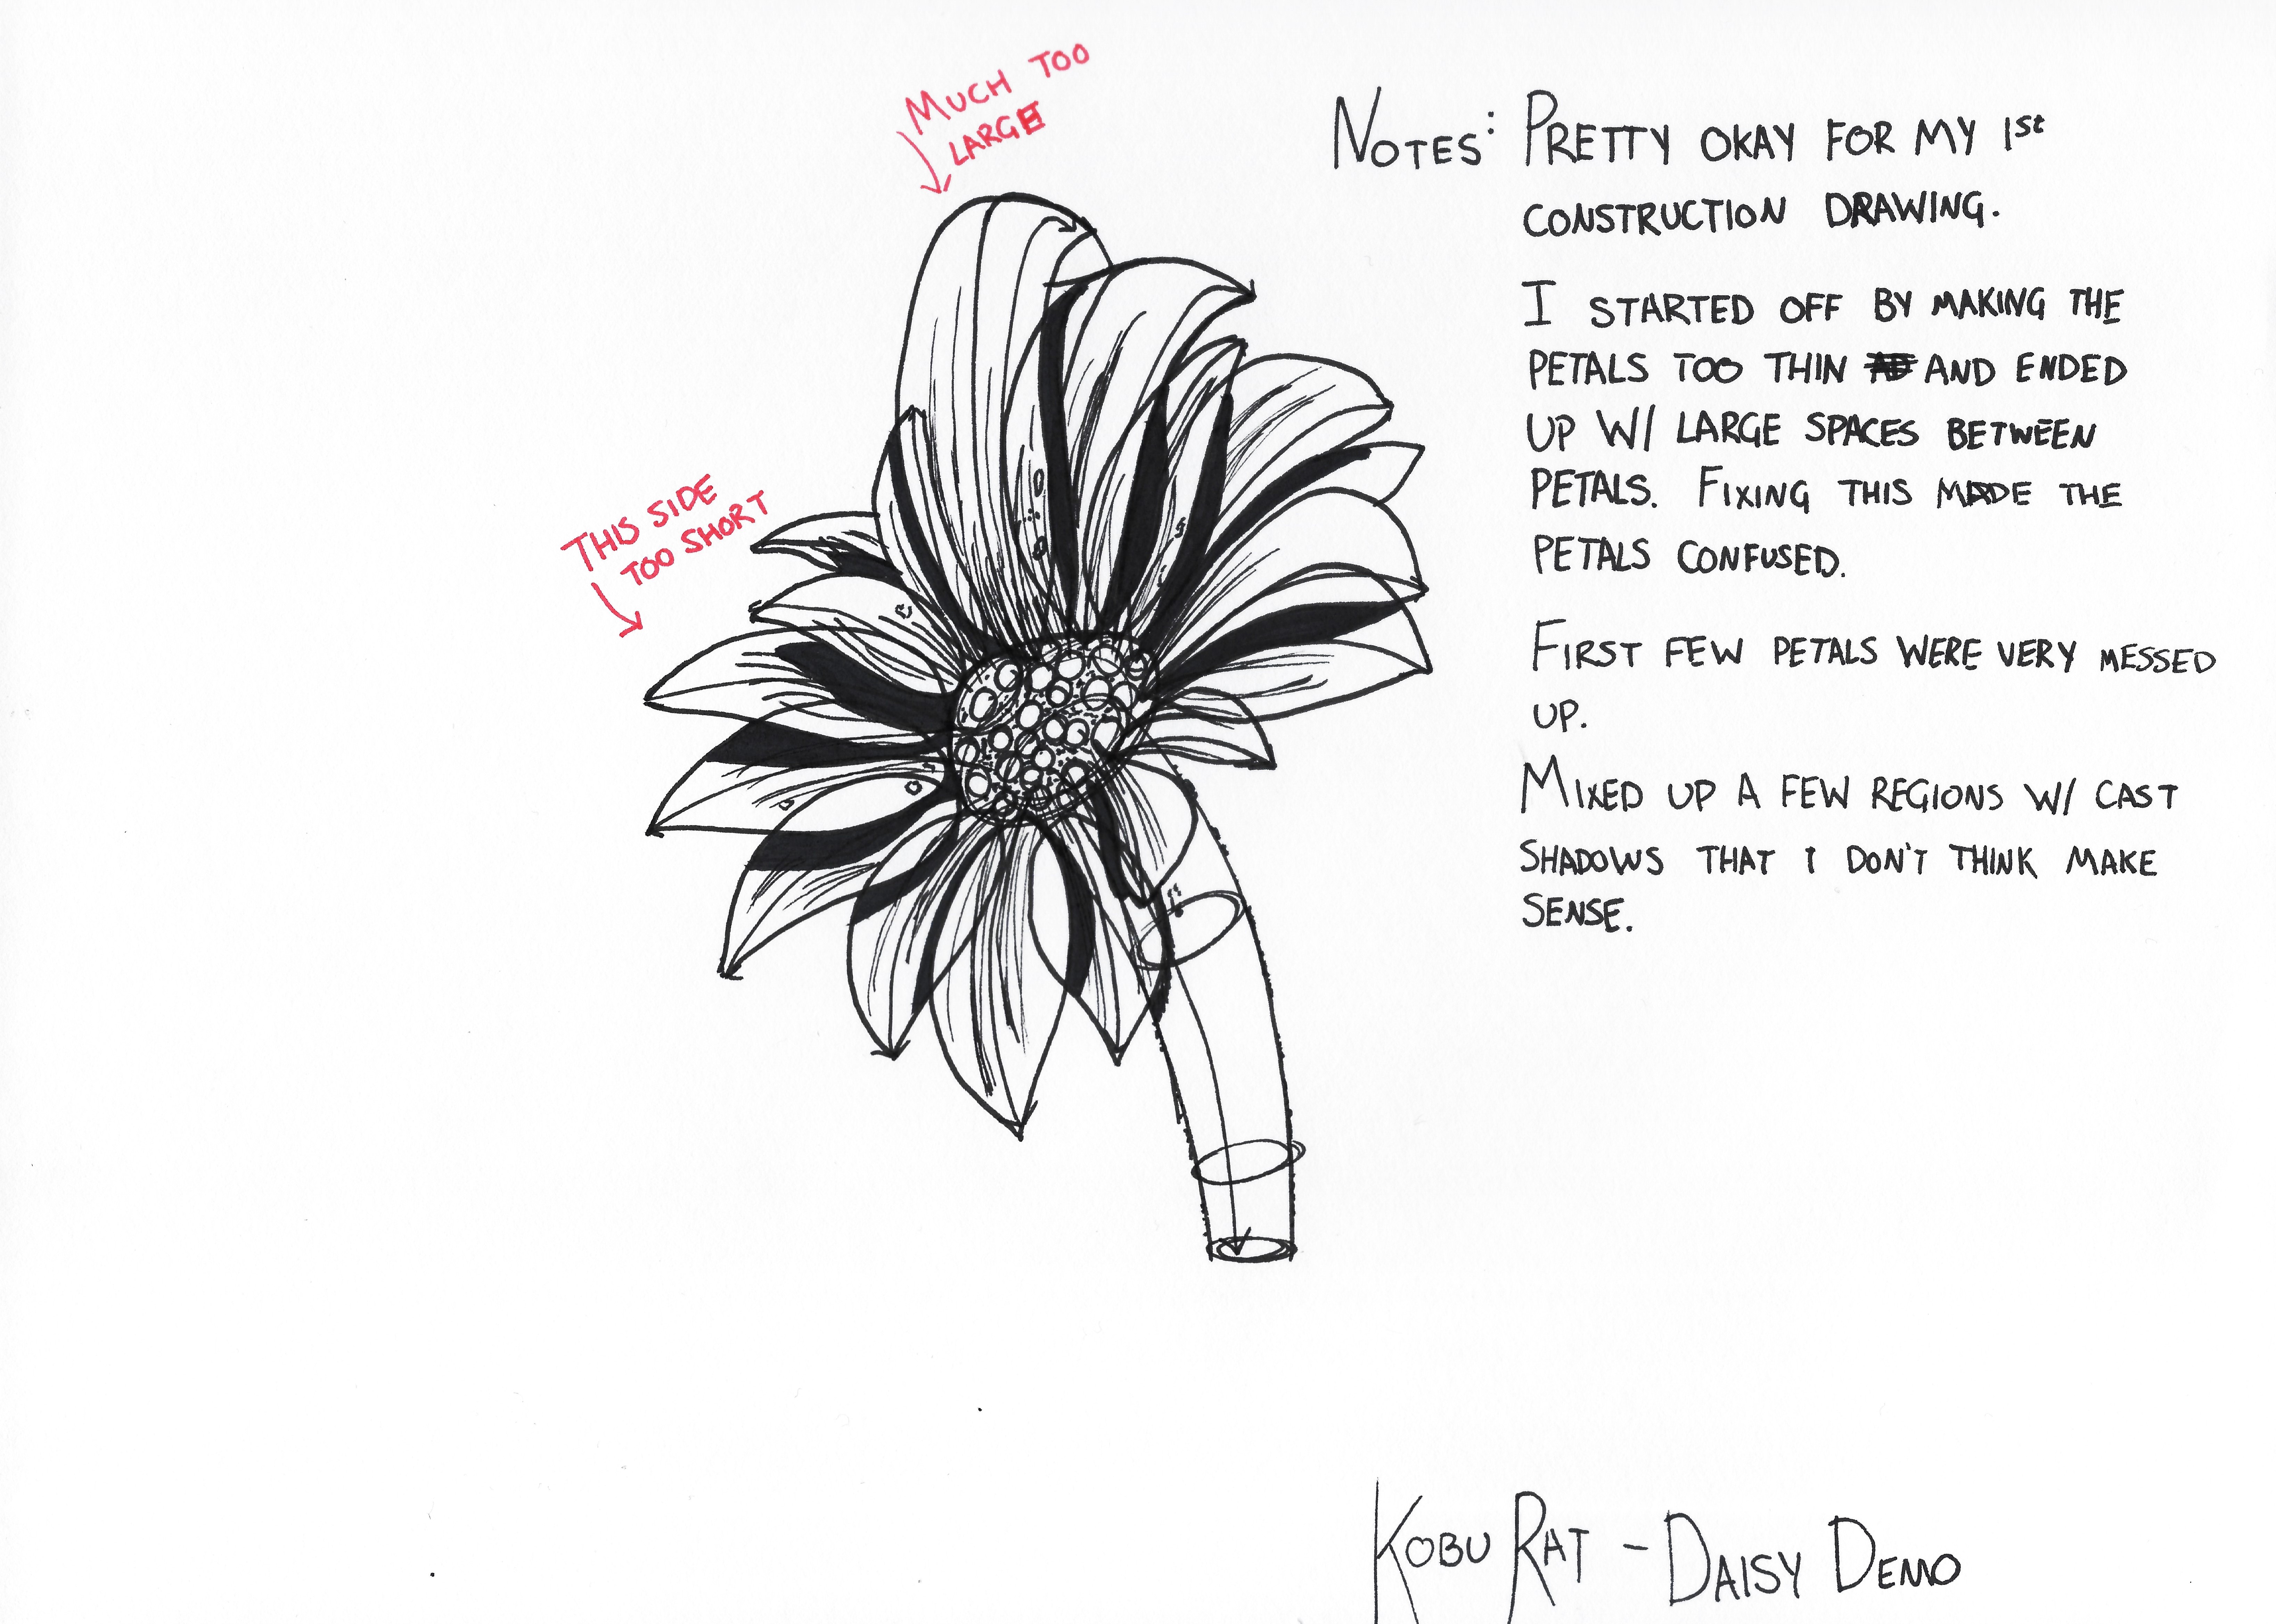 MUCH TOO
LARGE
THIS SIDE
TOO SHORT
NOTES: PRETTY OKAY FOR MY 1st
CONSTRUCTION DRAWING.
I STARTED OFF BY MAKING THE
PETALS TOO THIN AND ENDED
UP W/ LARGE SPACES BETWEEN
PETALS. FIXING THIS MADE THE
PETALS CONFUSED.
FIRST FEW PETALS WERE VERY MESSED
UP.
MIXED UP A FEW REGIONS W/ CAST
SHADOWS THAT I DON'T THINK MAKE
SENSE.
KOBU RAT - DAISY DEMO